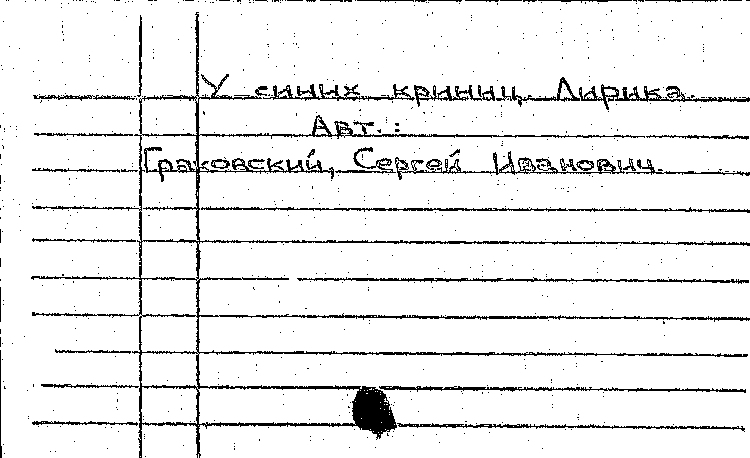 У синих криниц. Лирика.
Авт.:
Граховский, Сергей Иванович.